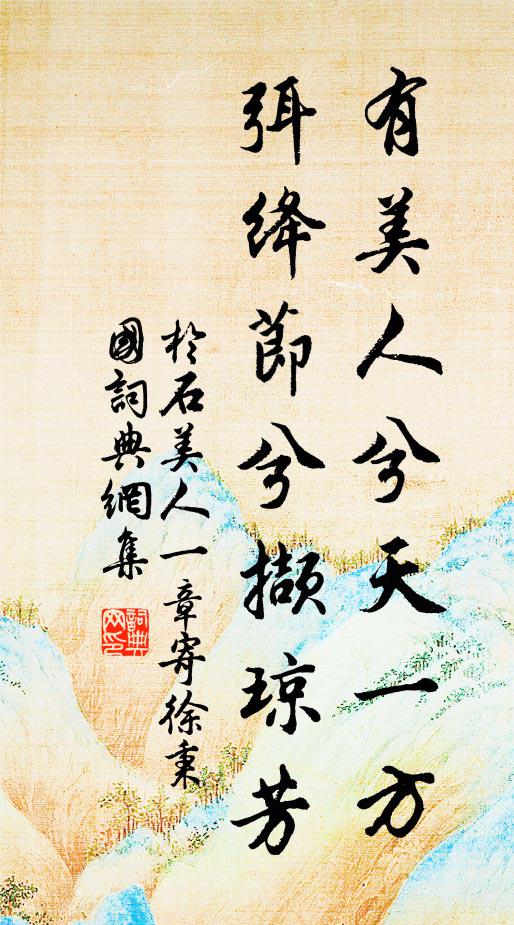 有美人兮天一方
弭绛節兮撷琼芳
於石美人一章寄徐秉
國詞典網集
詞典
网印